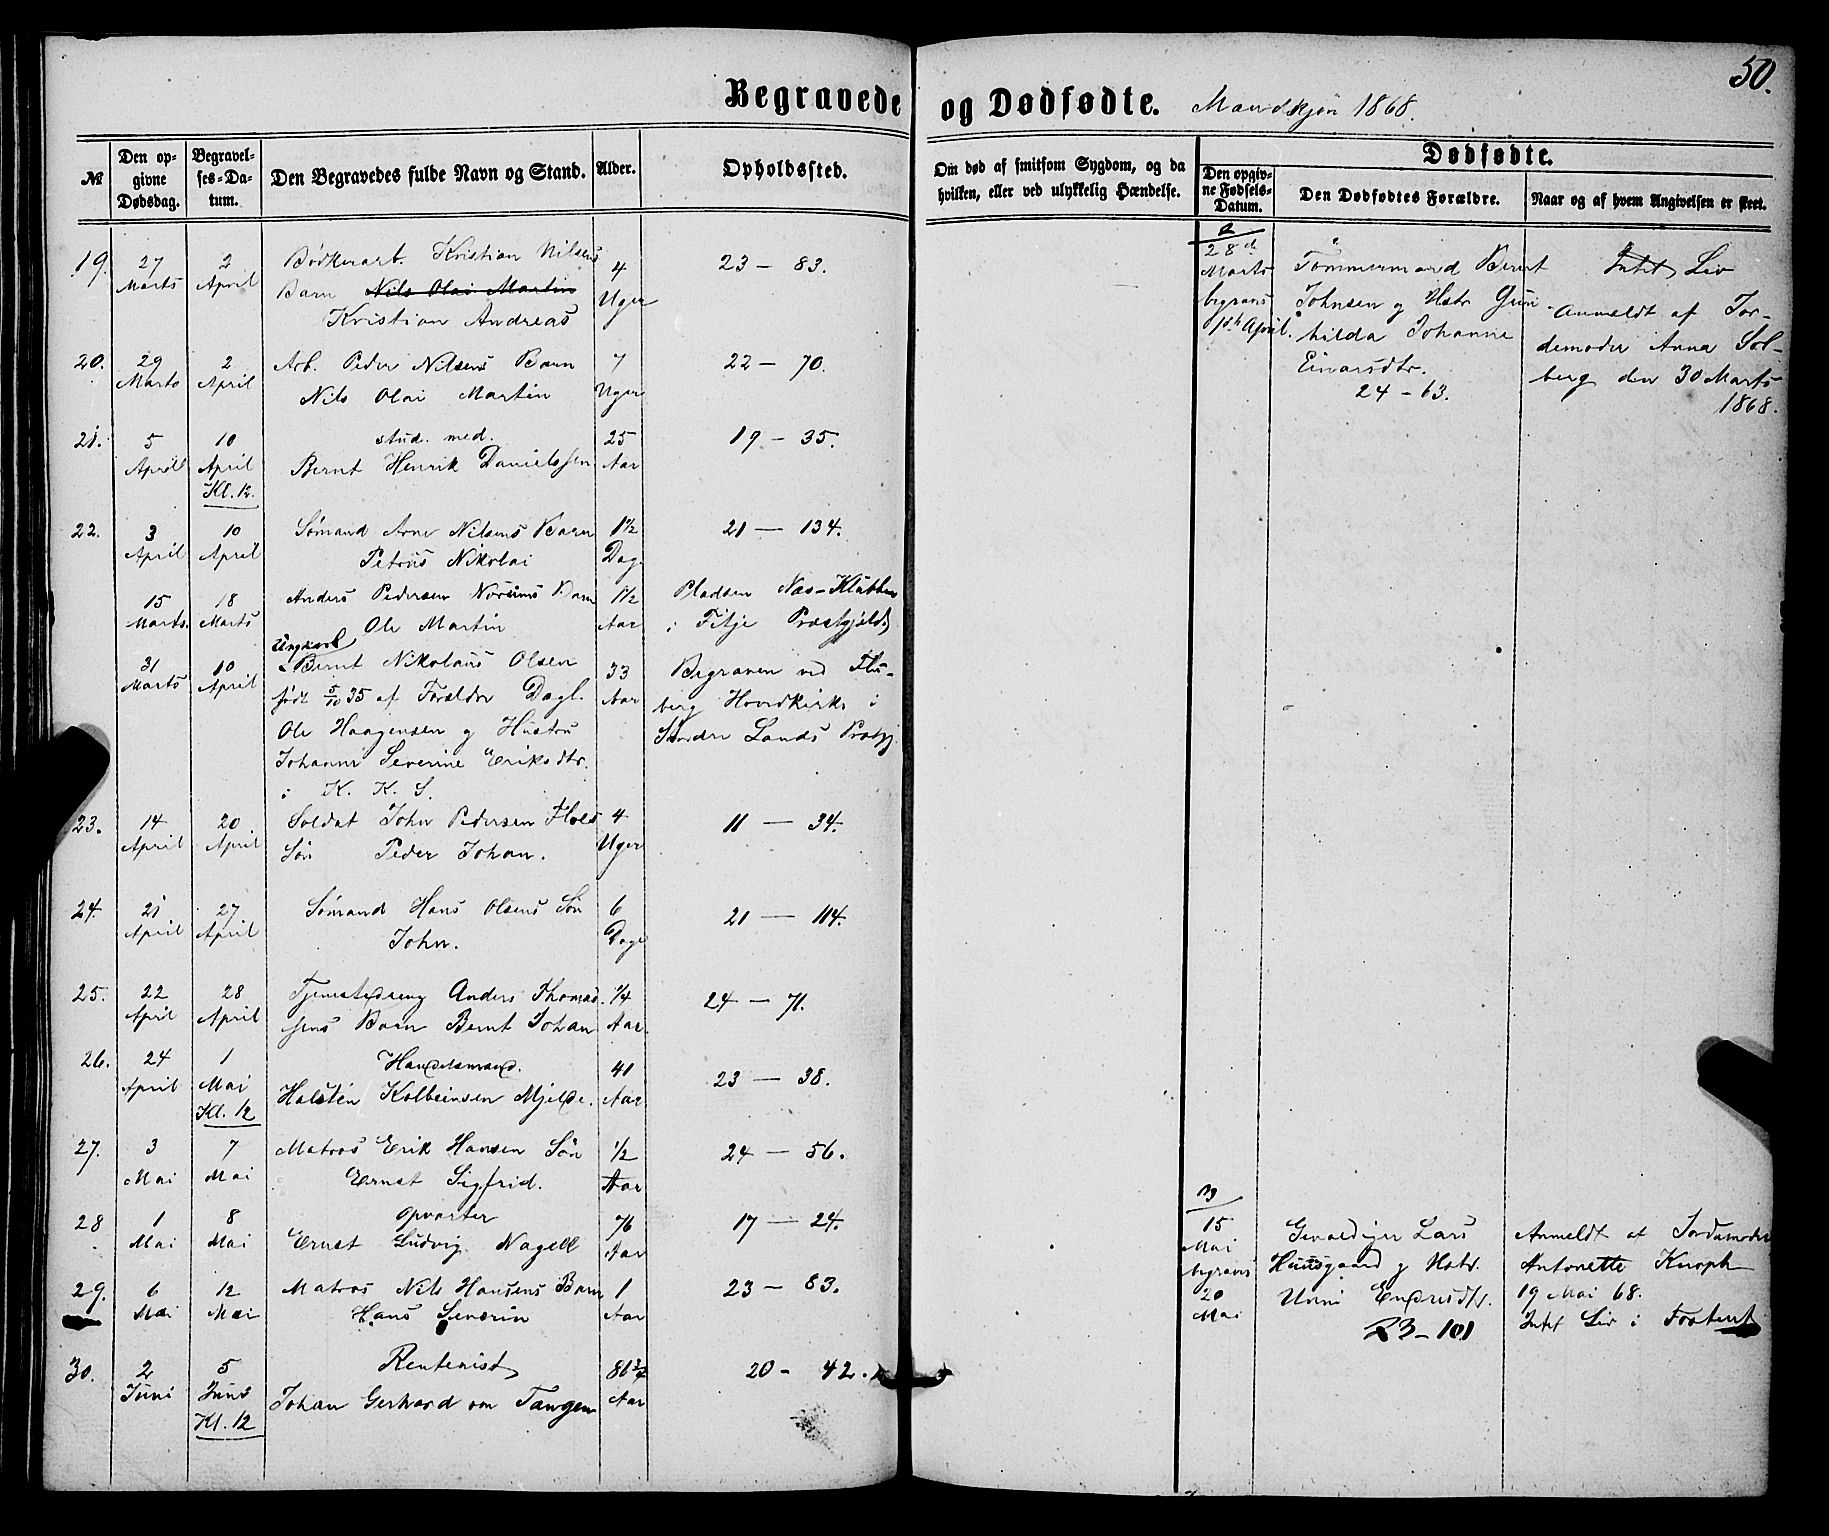 50.
Begravede og Dødfødte. Mandskjøn 1868.
№
Den op-
givne
Dødsdag.
Begravel-
ses-Da-
tum.
Den Begravedes fulde Navn og Stand.
Alder.
Opholdssted.
Om død af smitsom Sygdom, og da
hvilken, eller ved ulykkelig Hændelse.
Dødfødte.
Den opgiv-
ne Fødsels-
Datum.
Den Dødfødtes Forældre.
Naar og af hvem Angivelsen er skeet.
19. 27 Marts 2 April
Bødkerarb. Kristian Nilsens
Barn Nils Olai Martin
Kristian Andreas
4 Uger
23 — 83.
20. 29 Marts 2 April
Arb. Peder Nilsens Barn
Nils Olai Martin
7 Uger
22 — 70.
21. 5 April 10 April Kl. 12.
stud. med.
Bernt Henrik Danielssen
25 Aar
19 — 35.
22. 3 April 10 April
Sømand Arne Nilsens Barn
Petrus Nikolai
1½ Dag.
21 — 134.
15 Marts. 18 Marts
Anders Pedersen Norums Barn
Ole Martin
1½ Aar
Pladsen Næs-Klubben
i Fitje Præstgjeld
31 Marts 10 April
Ungkarl
Bernt Nikolaus Olsen
født 5/10 35 af Forældre Dagl.
Ole Haagensen og Hustru
Johanne Severine Eriksdtr.
i K. K. S.
33 Aar
Begraven ved Flu-
berg Hovedkirke i
Søndre Lands Præstgj.
23. 14 April 20 April
Soldat John Pedersen Floes
Søn Peder Johan.
4 Uger
11 — 34.
24. 21 April 27 April
Sømand Hans Olsens Søn
John.
6 Dage
21 — 114.
25. 22 April 28 April
Tjenestedreng Anders Thomas-
sens Barn Bernt Johan
¼ Aar.
24 — 71.
26. 24 April 1 Mai Kl. 12
Handelsmand.
Halsten Kolbeinsen Mjelde.
41 Aar
23 — 38.
27. 3 Mai 7 Mai
Matros Erik Hansen Søn
Ernst Sigfrid.
½ Aar
24 — 56.
28 1 Mai 8 Mai
Opvarter
Ernst Ludvig Nagell
76 Aar
17 — 24.
29. 6 Mai 12 Mai
Matros Nils Hansens Barn
Hans Severin
1 Aar
23 — 83.
30. 2 Juni 5 Juni Kl. 12
Rentenist
Johan Gerhard von Tangen
81¾ Aar
20 - 42.
28de
Marts
begravet
1ste April.
Tømmermand Bernt
Johnsen og Hstr Gun
hilda Johanne
Einarsdtr.
24 - 63.
Intet Liv
Anmeldt af Jor-
demoder Anna Sol-
berg den 30 Marts
1868.
15
Mai
begravet
20
Mai
Gevaldiger Lars
Huusgaard og Hstr.
Unni Endresdtr.
23 - 101
Anmeldt af Jordemoder
Antonette Knoph
19 Mai 68.
Intet Liv i Fosteret